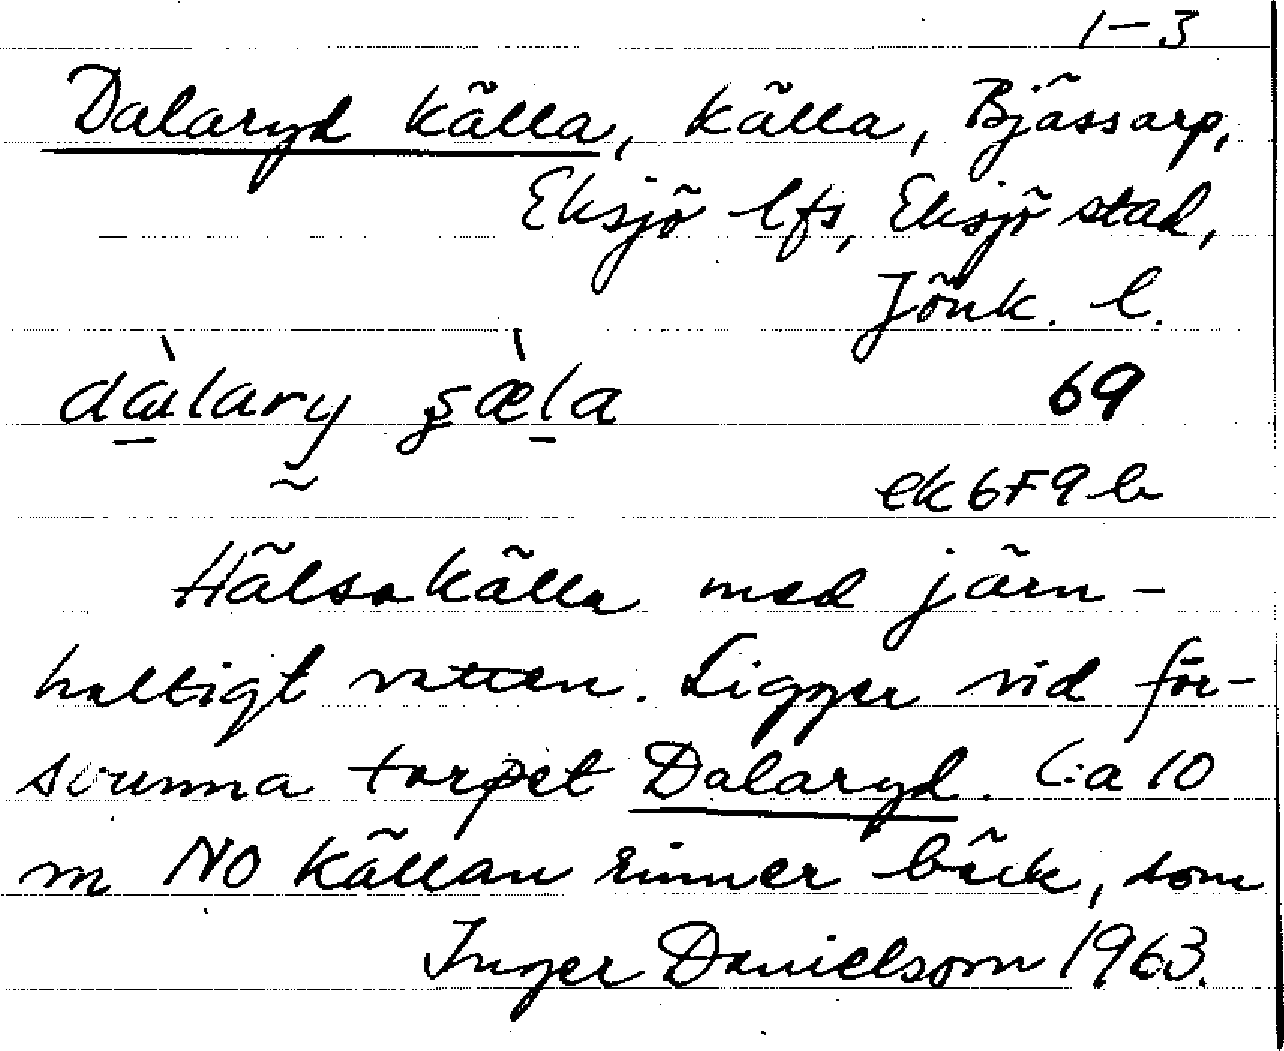 1-3
Dalaryd källa, källa, Bjässarp,
Eksjö lfs, Eksjö stad,
Jönk. l.
dàlary s̨æ̀la 69
ek 6F9b
Hälsokälla med järn-
haltigt vatten. Ligger vid för-
svunna torpet Dalaryd. C:a 10
m NO källan rinner bäck, som
Inger Danielsson 1963.